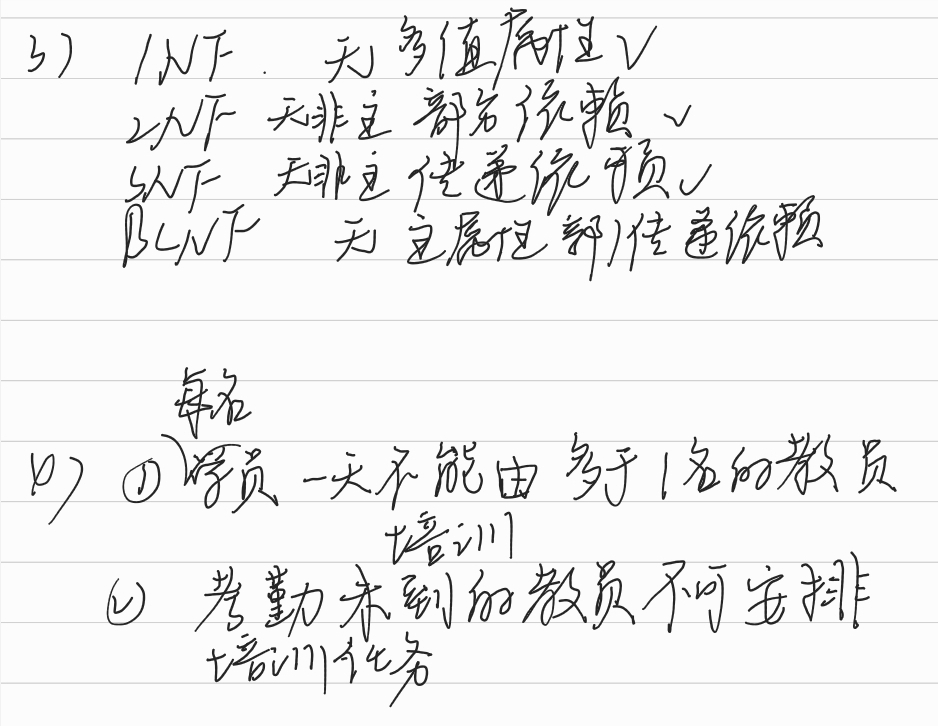 3) 1NF. 无多值属性√
2NF 无非主部分依赖√
3NF 无非主传递依赖√
BCNF 无主属性部/传递依赖
每名
4) ① 学员一天不能由多于1名的教员
培训
② 考勤未到的教员不可安排
培训任务